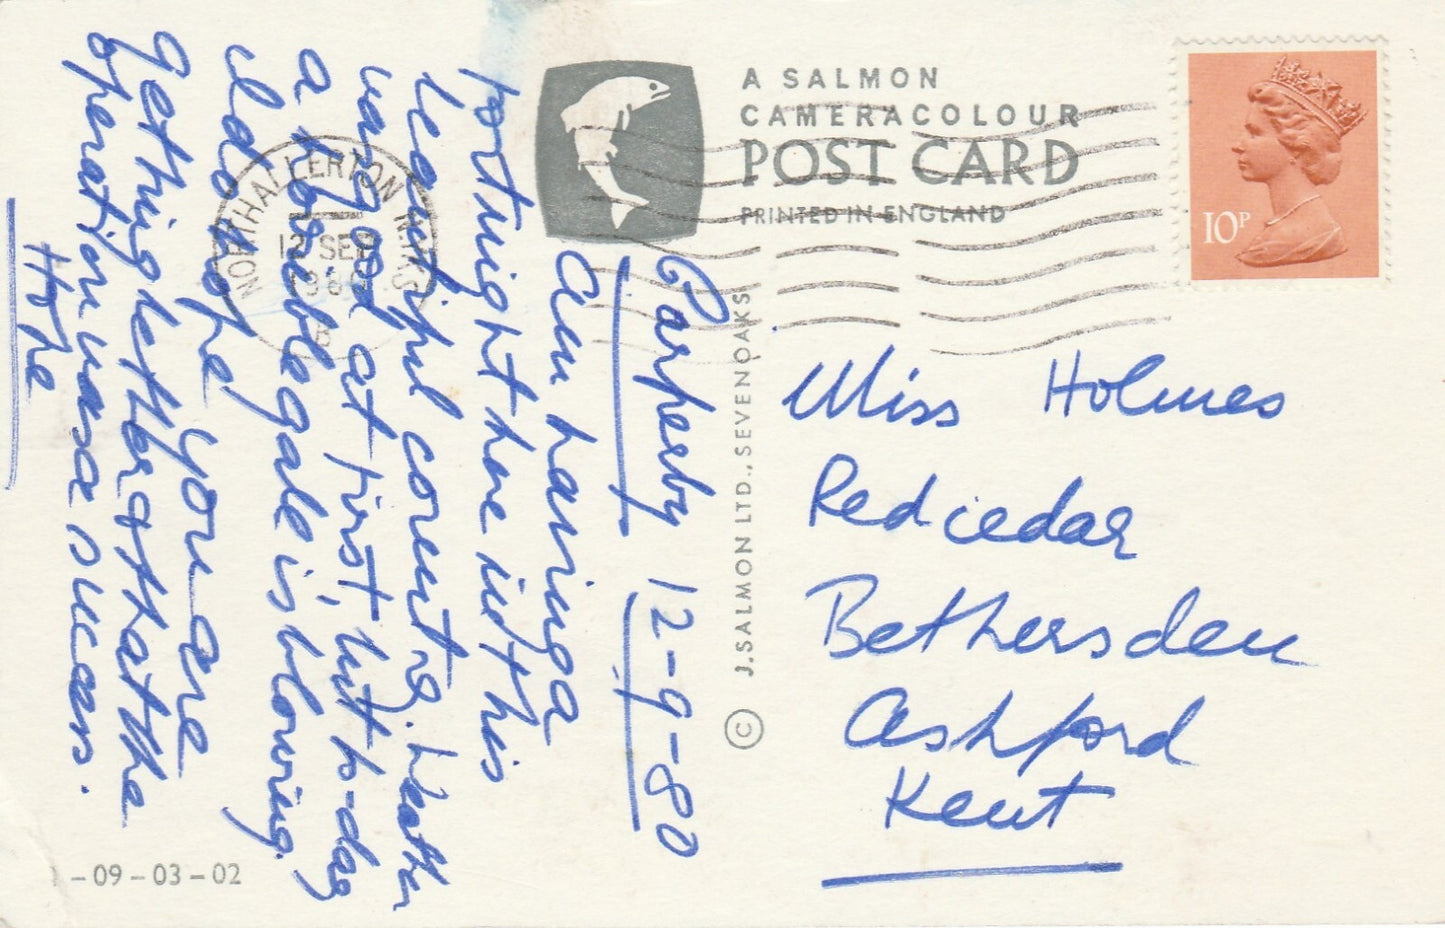 A SALMON
CAMERACOLOUR
POST CARD
PRINTED IN ENGLAND
10P
NORTHALLERTON N. YKS
12 SEP
1980
B
© J. SALMON LTD., SEVENOAKS
Carperby 12-9-80
Am having a
fortnight here in this
beautiful country. Weather
v. good at first, but to-day
a terrible gale is blowing.
I do hope you are
getting better & that the
operation was a success.
Hope
Miss Holmes
Red cedar
Bethersden
Ashford
Kent
-09-03-02